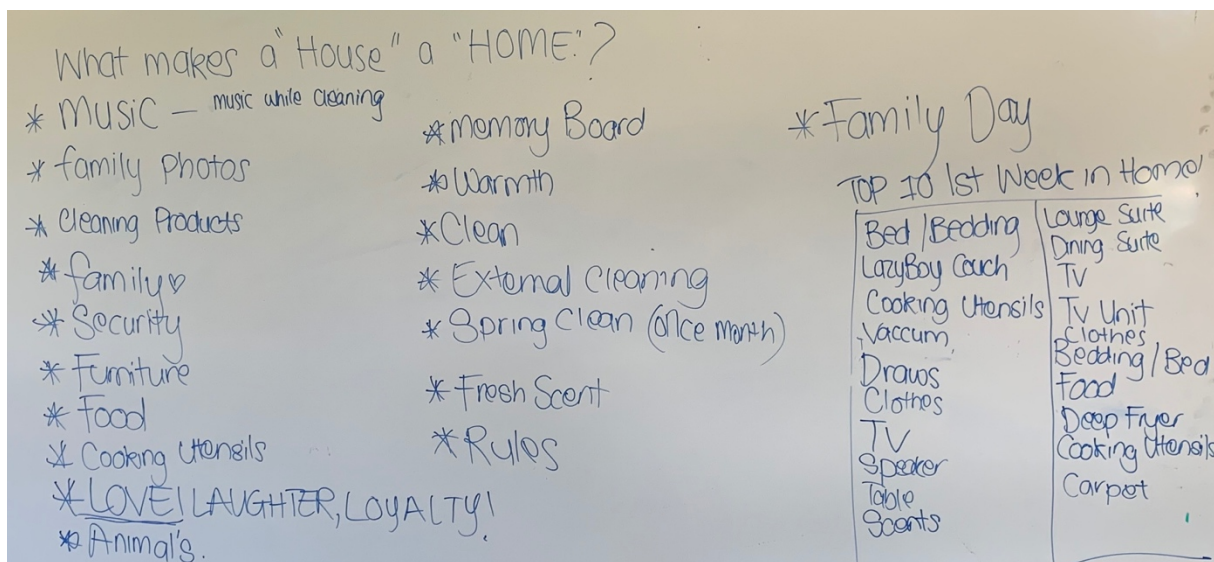 What makes a "House" a "HOME"?
* Music – music while cleaning
* family Photos
* Cleaning Products
* family♡
* Security
* Furniture
* Food
* Cooking Utensils
* LOVE! LAUGHTER, LOYALTY!
* Animal's.
* Memory Board
* Warmth
* Clean
* External Cleaning
* Spring Clean (Once Month)
* Fresh Scent
* Rules
* Family Day
TOP 10 1st Week in Home!
Bed / Bedding
LazyBoy Couch
Cooking Utensils
Vaccum
Draws
Clothes
TV
Speaker
Table
Scents
Lounge Suite
Dining Suite
TV
Tv Unit
Clothes
Bedding / Bed
Food
Deep Fryer
Cooking Utensils
Carpet